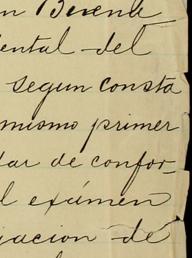 n Buena
ental del
segun consta
mismo primer
dar de confor-
l exámen
iacion de